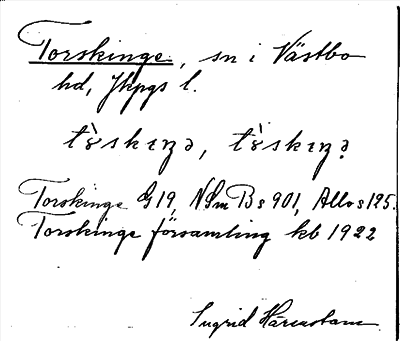 Torskinge, sn i Västbo
hd, Jkpgs l.
tò̤skıŋə, tò̤skıŋə
Torskinge G 19, NSmB s 901, Allvs 125.
Torskinge församling kb 1922
Ingrid Härenstam